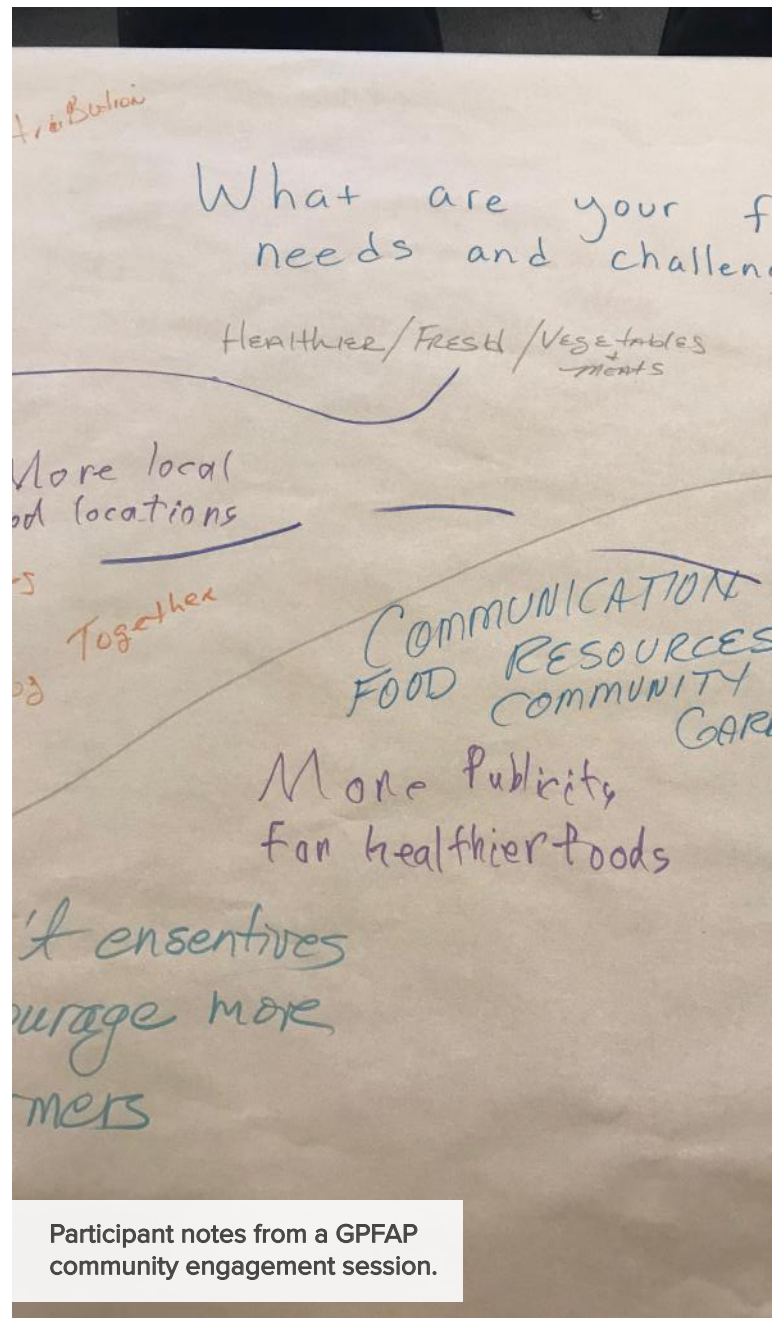 What are your f
needs and challen
Healthier/Fresh/Vegetables
+
meats
More local
od locations
Together
Communication
Food Resources
Community
Gar
More Publicity
for healthier foods
't ensentives
ourage more
mers
Participant notes from a GPFAP
community engagement session.